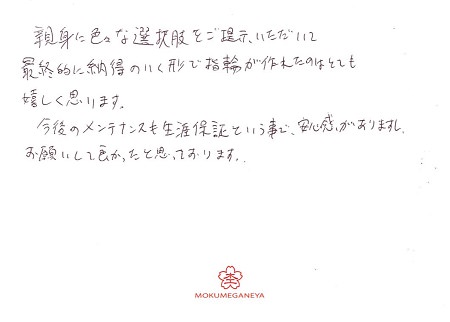 親身に色々な選択肢をご提示いただいて
最終的に納得のいく形で指輪が作れたのはとても
嬉しく思います。
今後のメンテナンスも生涯保証という事で、安心感がありますし、
お願いして良かったと思っております。
MOKUMEGANEYA